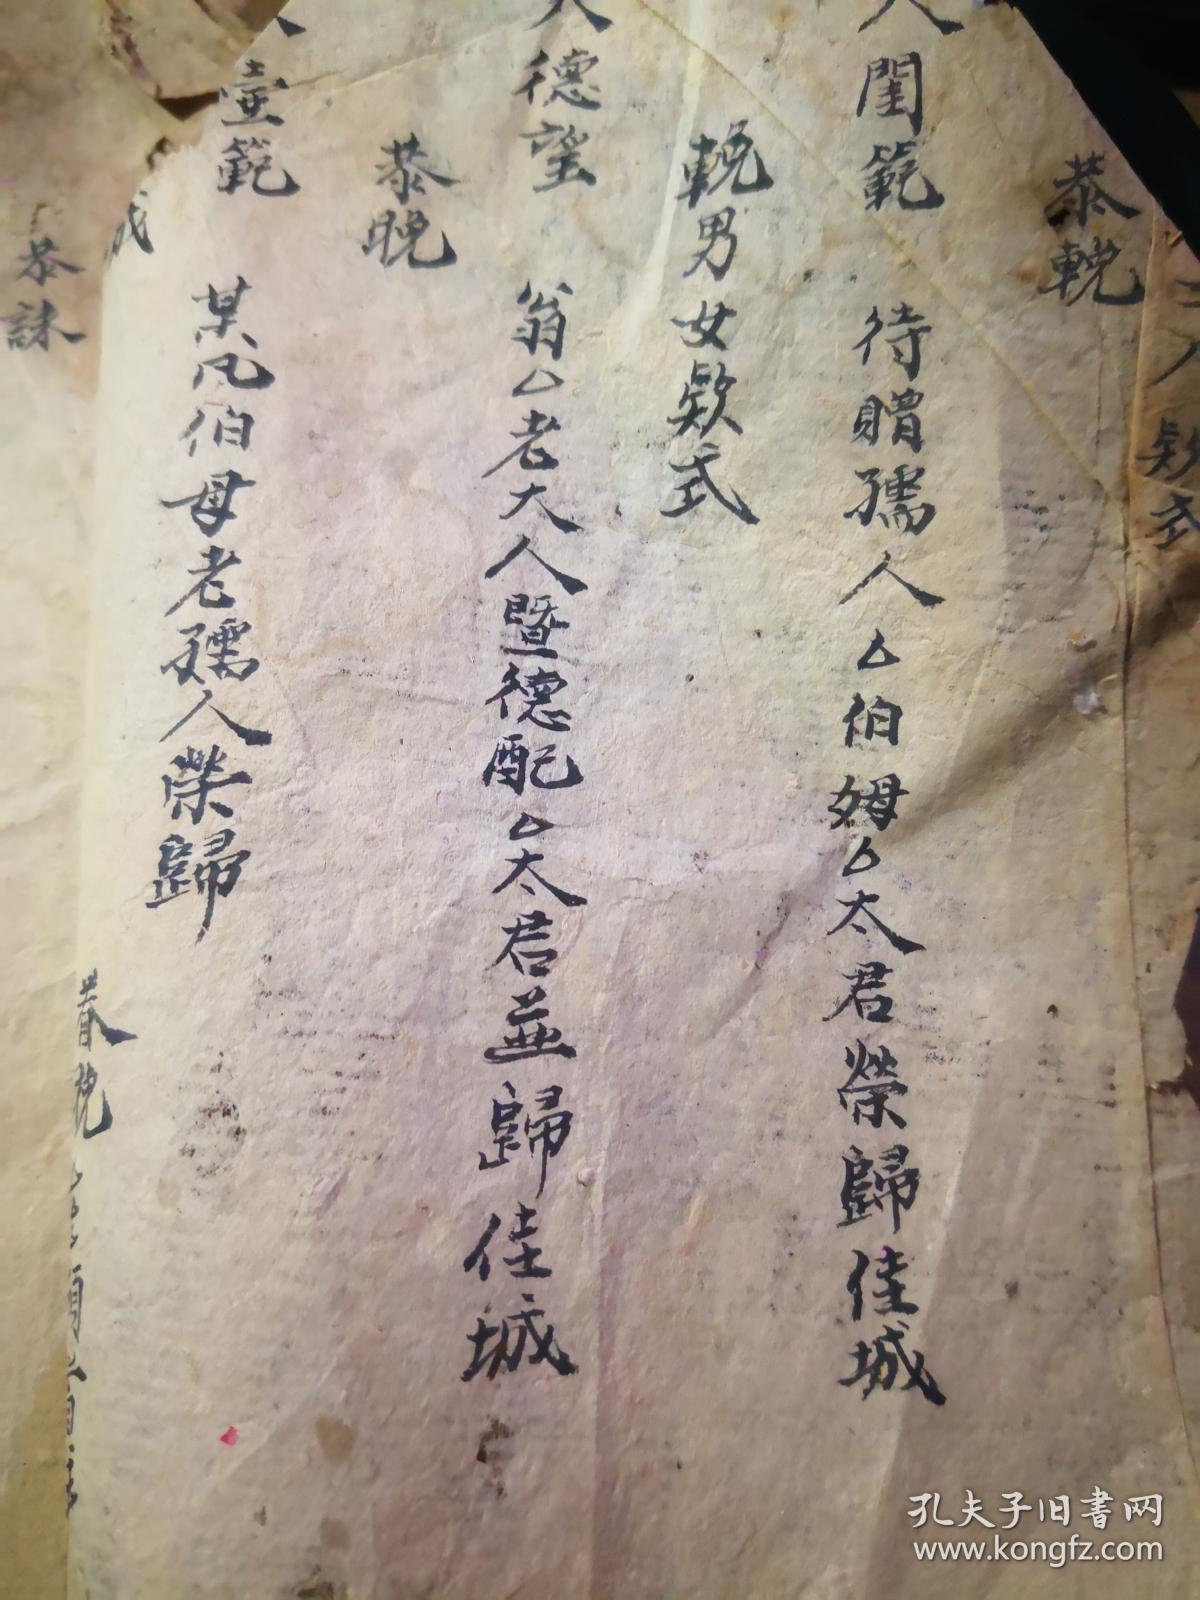 欵式
恭輓
閨範
待贈孺人厶伯姆厶太君榮歸佳城
輓男女欵式
大德望
翁厶老大人暨德配厶太君並歸佳城
恭晚
壼範
某凡伯母老孺人榮歸
城
眷晚
恭
孔夫子旧书网
www.kongfz.com